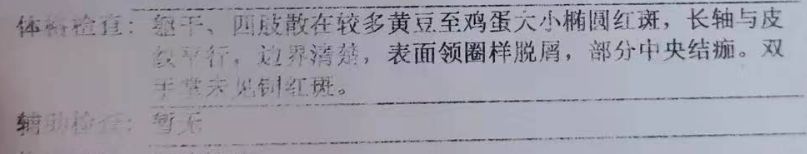 体格检查：躯干、四肢散在较多黄豆至鸡蛋大小椭圆红斑，长轴与皮
纹平行，边界清楚，表面领圈样脱屑，部分中央结痂。双
手掌未见铜红斑。
辅助检查：暂无